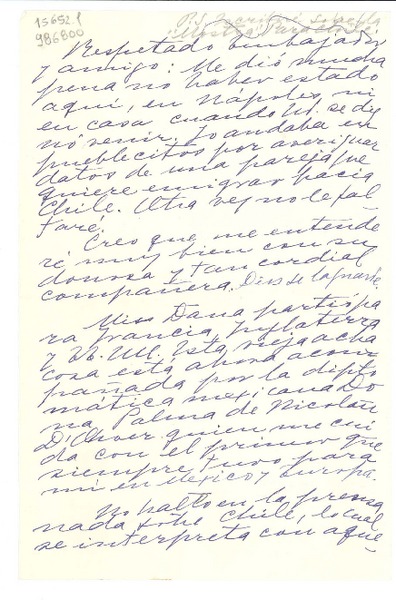 15652.1
986800
P.S. Escribí sobre la
Respetado Embajador
y amigo: Me dió mucha
pena no haber estado
aquí, en Nápoles, ni
en casa cuando U. se dig
nó venir. Yo andaba en
pueblecitos por averiguar
datos de una pareja que
quiere emigrar hacia
Chile. Otra vez no le fal-
taré.
Creo que me entende
ré muy bien con su
donosa y tan cordial
compañera. Dios se la guarde.
Miss Dana partió pa
ra Francia, Inglaterra
y EE. UU. Esta vieja acha
cosa está ahora acom
pañada por la diplo
mática mexicana Do
ña Palma de Nicolau
D'Olwer quien me cui
da con el primor que
siempre tuvo para
mí en México y Europa.
No hallo en la prensa
nada sobre Chile, lo cual
se interpreta con aque-